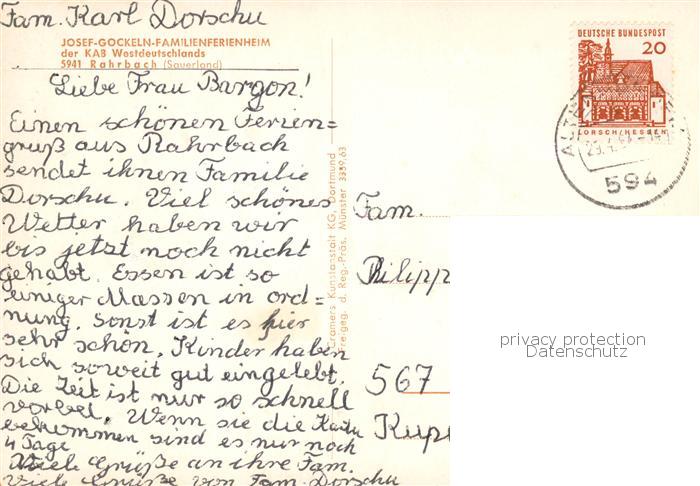 Fam. Karl Dorschu
JOSEF-GOCKELN-FAMILIENFERIENHEIM
der KAB Westdeutschlands
5941 Rahrbach (Sauerland)
Liebe Frau Bargon!
Einen schönen Ferien=
gruß aus Rahrbach
sendet ihnen Familie
Dorschu. Viel schönes
Wetter haben wir
bis jetzt noch nicht
gehabt. Essen ist so
einiger Massen in ord=
nung. Sonst ist es hier
sehr schön. Kinder haben
sich soweit gut eingelebt.
Die Zeit ist nur so schnell
vorbei. Wenn sie die Karte
bekommen sind es nur noch
4 Tage
Viele Grüße an ihre Fam.
Viele Grüße von Fam. Dorschu
Cramers Kunstanstalt KG, Dortmund
Freigeg. d. Reg.-Präs. Münster 3359/63
DEUTSCHE BUNDESPOST
20
LORSCH/HESSEN
594
Fam.
Philipp
567
privacy protection
Datenschutz